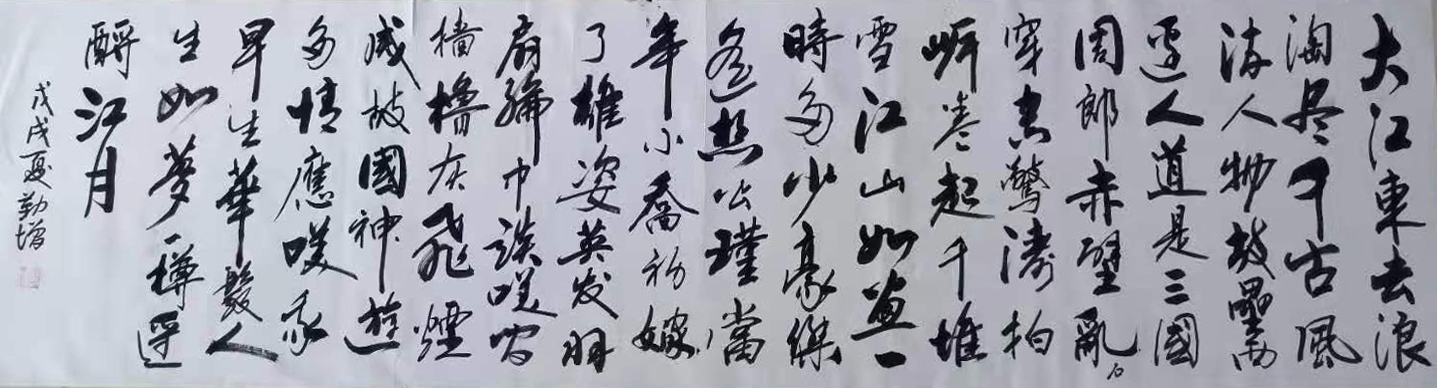 大江東去浪
淘尽千古風
流人物故壘西
邊人道是三國
周郎赤壁亂石
穿空驚濤拍
岸卷起千堆
雪江山如畫一
時多少豪傑
遙想公瑾當
年小喬初嫁
了雄姿英发羽
扇綸巾談咲間
檣櫓灰飛煙
滅故國神遊
多情應咲我
早生華髮人
生如夢一樽還
酹江月
戊戌夏勤增